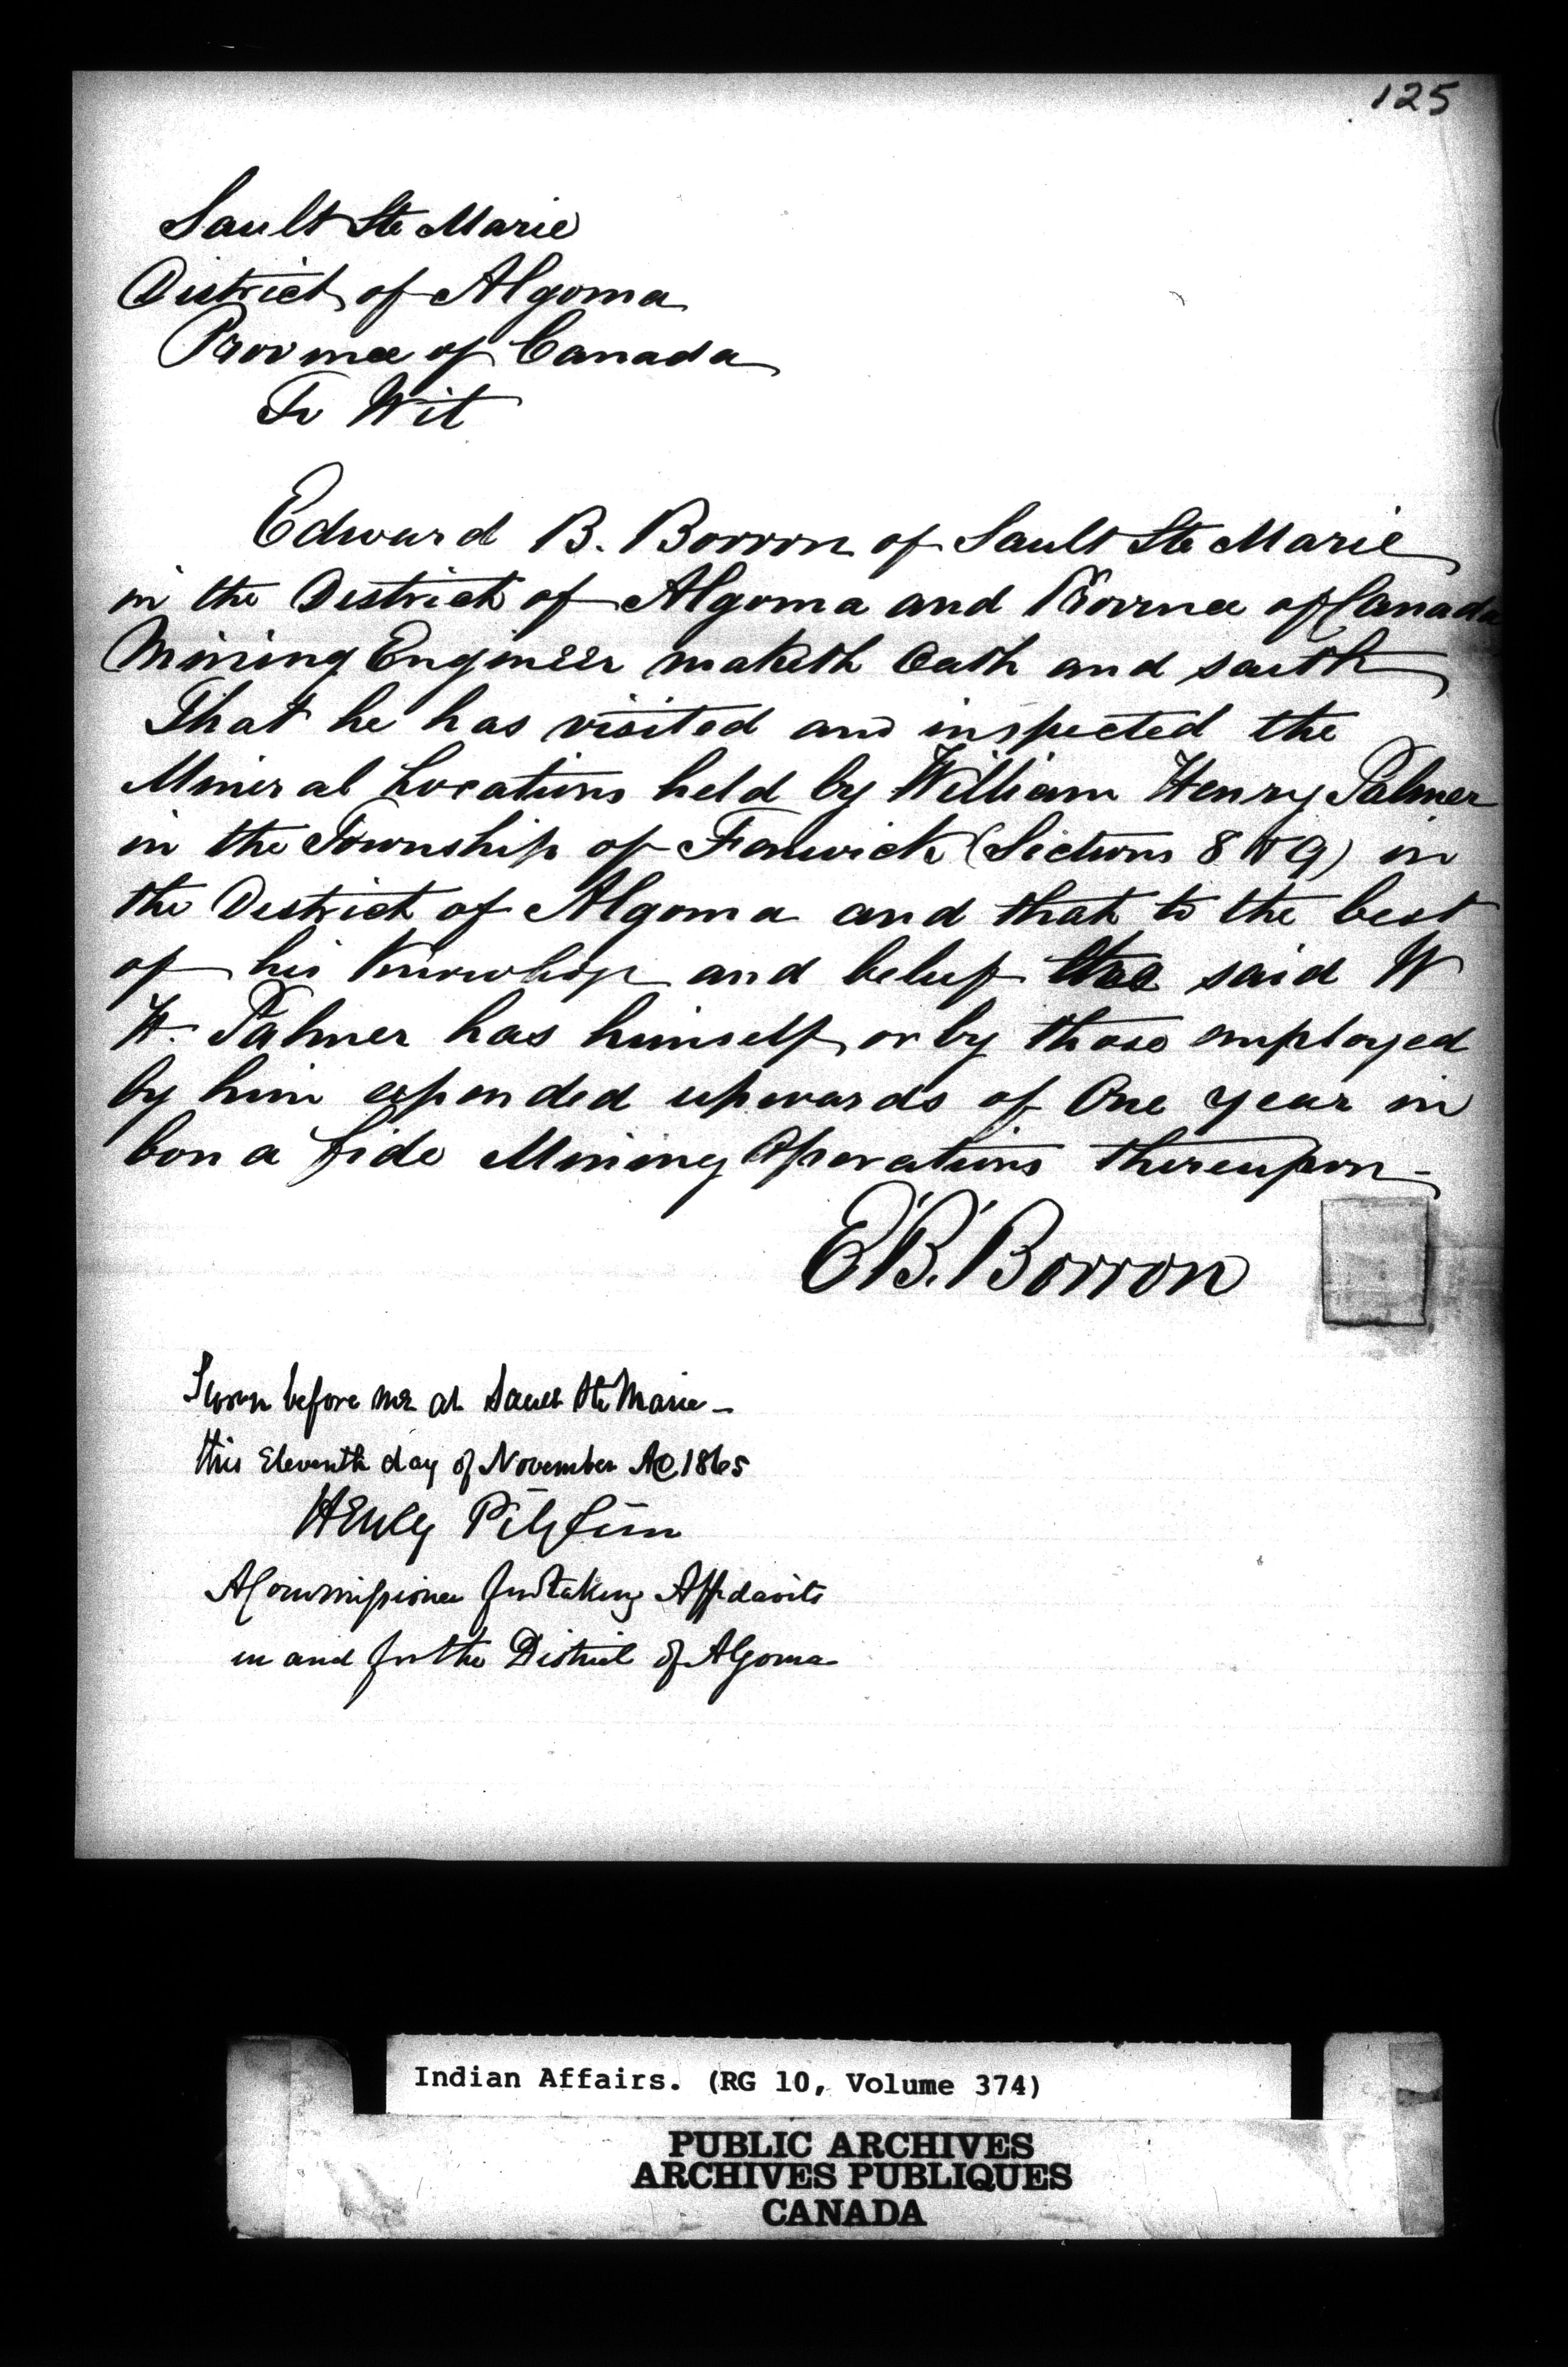 125
Sault Ste Marie
District of Algoma
Province of Canada
To Wit
Edward B. Borron of Sault Ste Marie
in the District of Algoma and Province of Canada
Mining Engineer maketh Oath and saith
That he has visited and inspected the
Mineral Locations held by William Henry Palmer
in the Township of Fenwick (Sections 8 & 9) in
the District of Algoma and that to the best
of his Knowledge and belief the said W
H. Palmer has himself or by those employed
by him expended upwards of One year in
bona fide Mining Operations thereupon -
E. B. Borron
Sworn before me at Sault Ste Marie -
this Eleventh day of November AD 1865
Henry Pilgrim
A Commissioner for taking Affidavits
in and for the District of Algoma
Indian Affairs. (RG 10, Volume 374)
PUBLIC ARCHIVES
ARCHIVES PUBLIQUES
CANADA